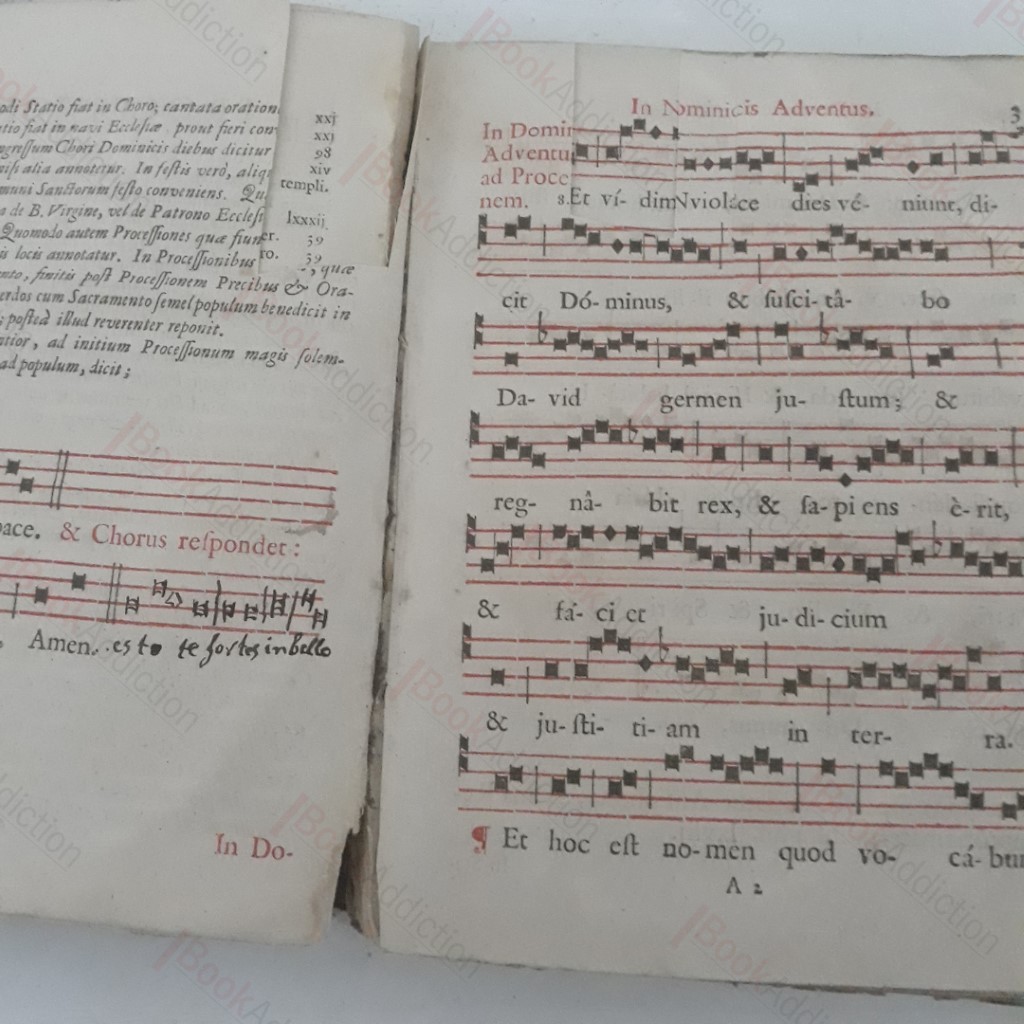 odi Statio fiat in Choro; cantata oration
tio fiat in navi Ecclesiæ. prout fieri con
ngressum Chori Dominicis diebus dicitur
nisi alia annotetur. In festis verò, aliqu
muni Sanctorum festo conveniens. Qu
a de B. Virgine, vel de Patrono Ecclesi
Quomodo autem Processiones quæ fiun
is locis annotatur. In Processionibus
nto, finitis post Processionem Precibus & Ora-
erdos cum Sacramento semel populum benedicit in
; posteà illud reverenter reponit.
ntior, ad initium Processionum magis solem-
ad populum, dicit;
xxj
xxj
98
xiv
templi.
lxxxij
er. 39
ro. 39
, quæ
pace. & Chorus respondet:
Amen. esto te fortes in bello
In Do-
In Nominicis Adventus. 3
In Domin
Adventu
ad Proce
nem. 8. Et ví- dimNviolece dies vé- niunt, di-
cit Dó- minus, & susci- tâ- bo
Da- vid germen ju- stum; &
reg- nâ- bit rex, & sa- pi ens è- rit,
& fá- ci et ju- di- cium
& ju- sti- ti- am in ter- ra.
¶ Et hoc est no- men quod vo- cá- bun
A 2